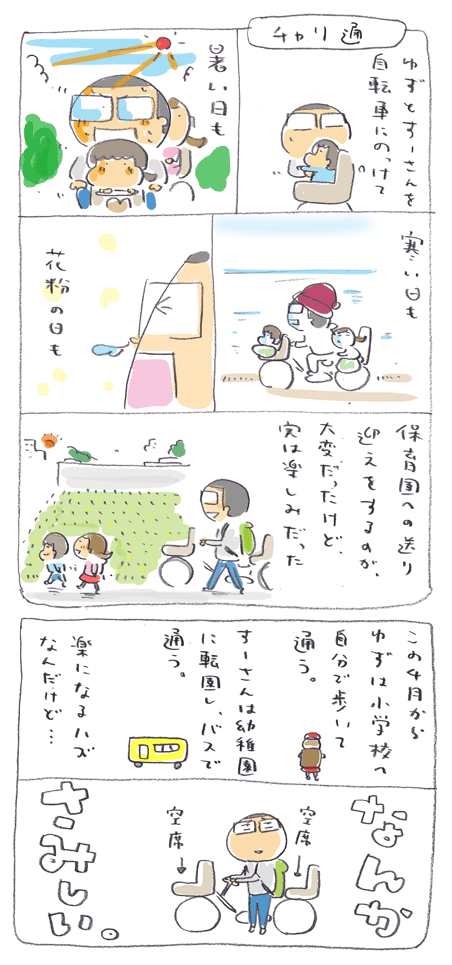 チャリ通
ゆずとすーさんを
自転車にのっけて
暑い日も
寒い日も
花粉の日も
保育園への送り
迎えをするのが、
大変だったけど、
実は楽しみだった
この4月から
ゆずは小学校へ
自分で歩いて
通う。
すーさんは幼稚園
に転園し、バスで
通う。
楽になるハズ
なんだけど…
なんか
空席
空席
さみしい。